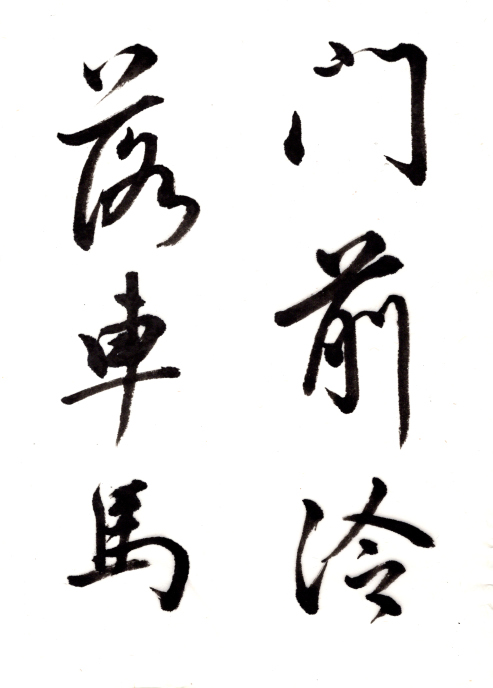 门前冷
落車馬